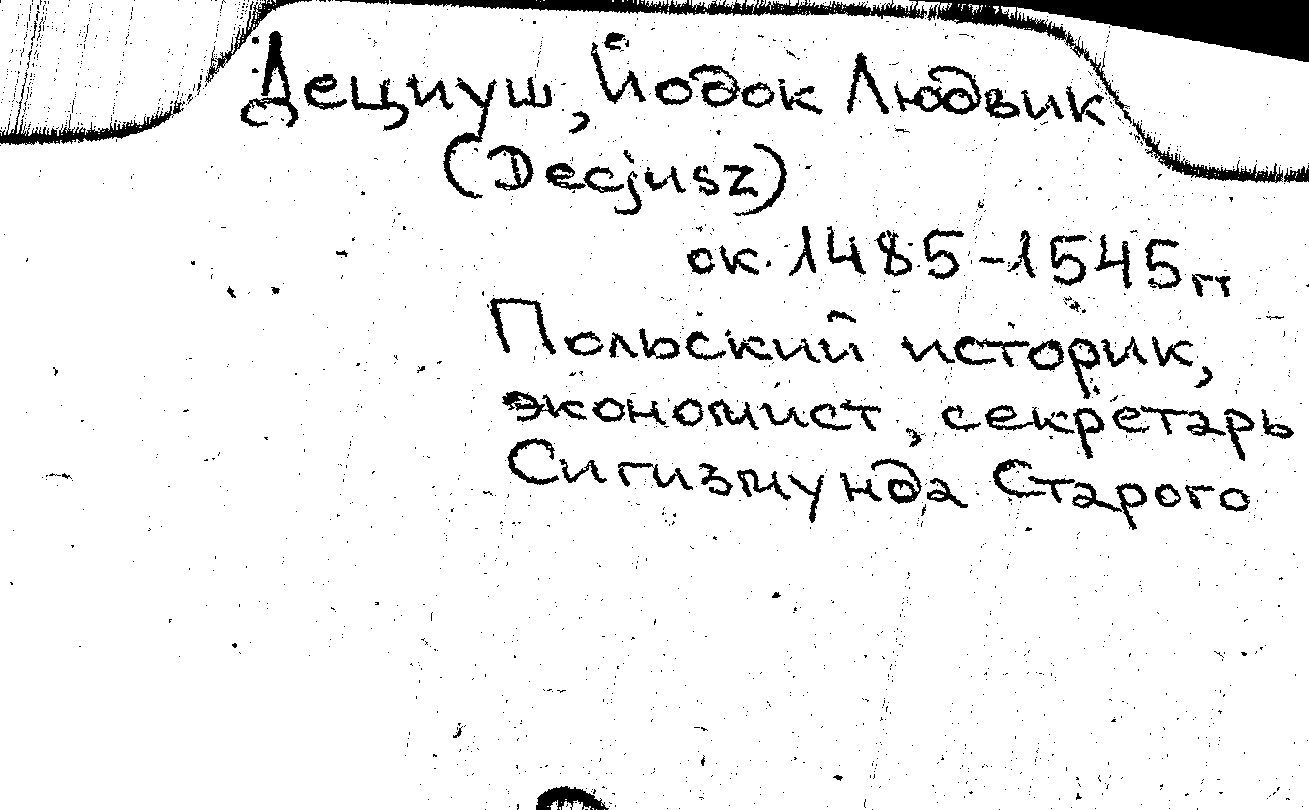 Дециуш, Йодок Людвик
(Decjusz)
ок. 1485-1545 гг
Польский историк,
экономист, секретарь
Сигизмунда Старого